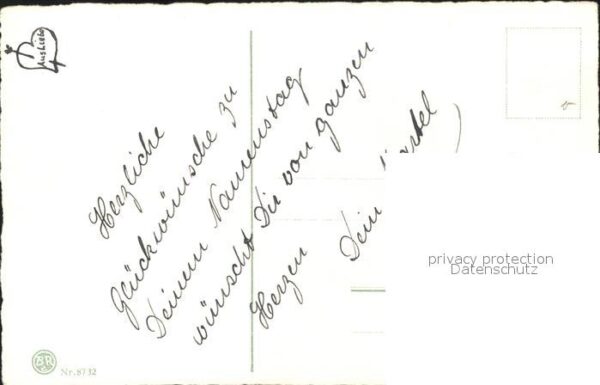 Auslieb
Herzliche
Glückwünsche zu
Deinem Namenstag
wünscht Dir von ganzen
Herzen Dein
privacy protection
Datenschutz
BR
Nr. 8732